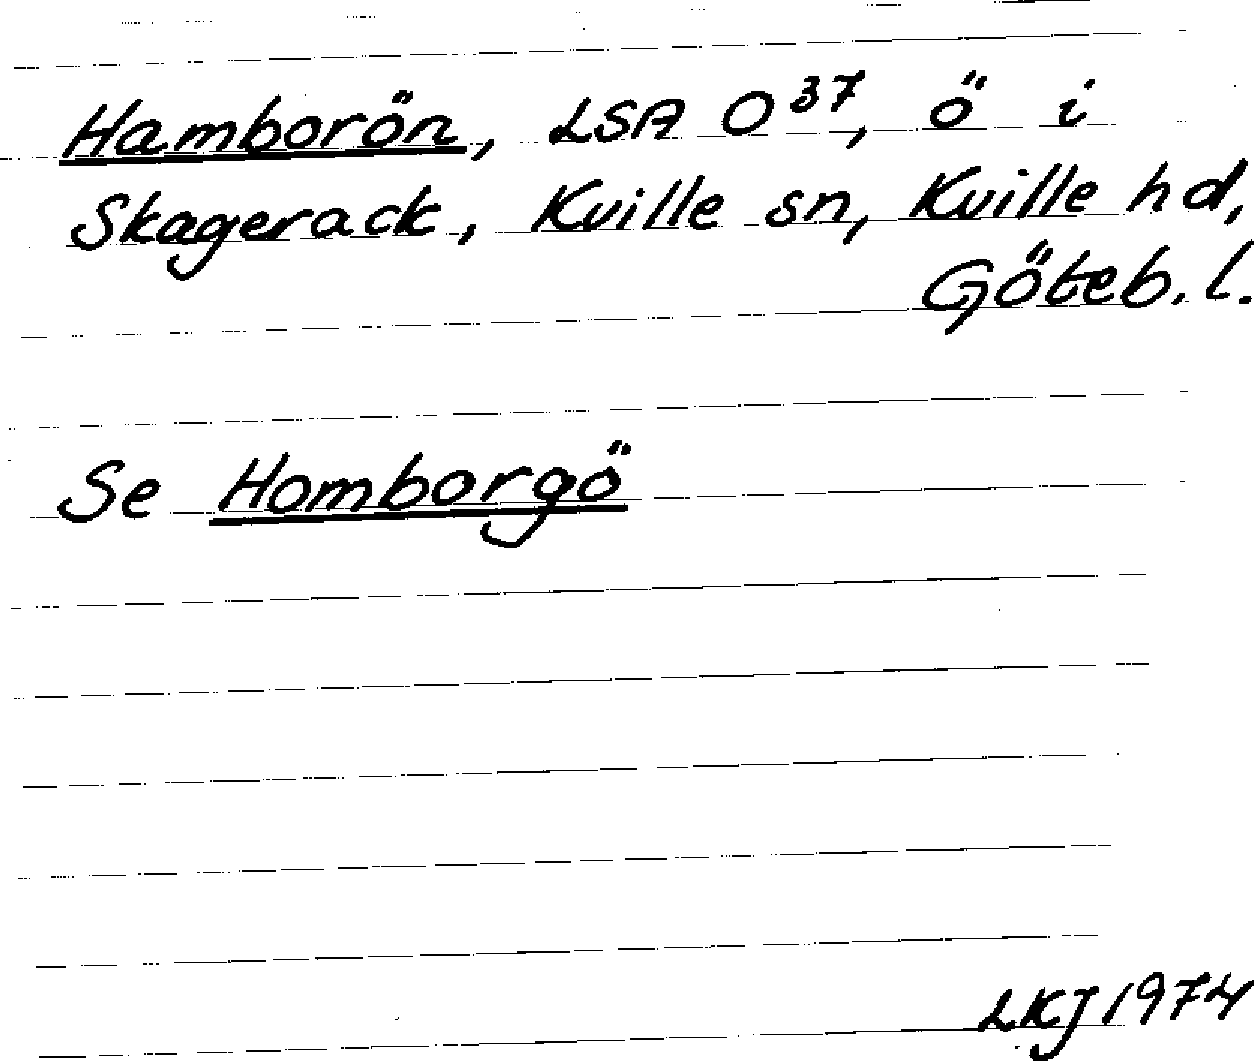 Hamborön, LSA O³⁷, ö i
Skagerack, Kville sn, Kville hd,
Göteb. l.
Se Homborgö
LKJ 1974